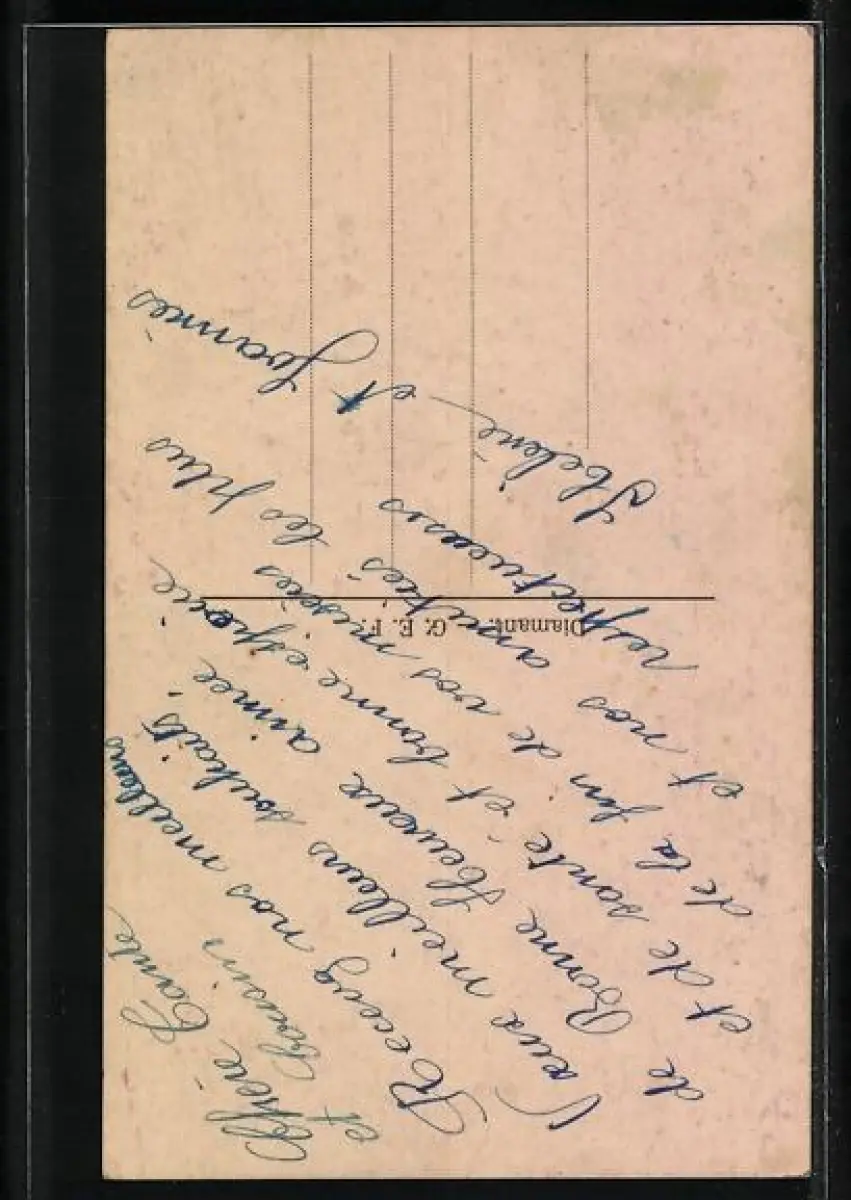 Chère Tante
et Cousin
Recevez nos meilleurs
Vœux meilleurs souhaits
de Bonne Heureuse année
et de sante et bonne espoire
de la fin de vos misères
et nos amitiés les plus
respectueuses
Helene et Joannès
Diamant. - G. E. F.